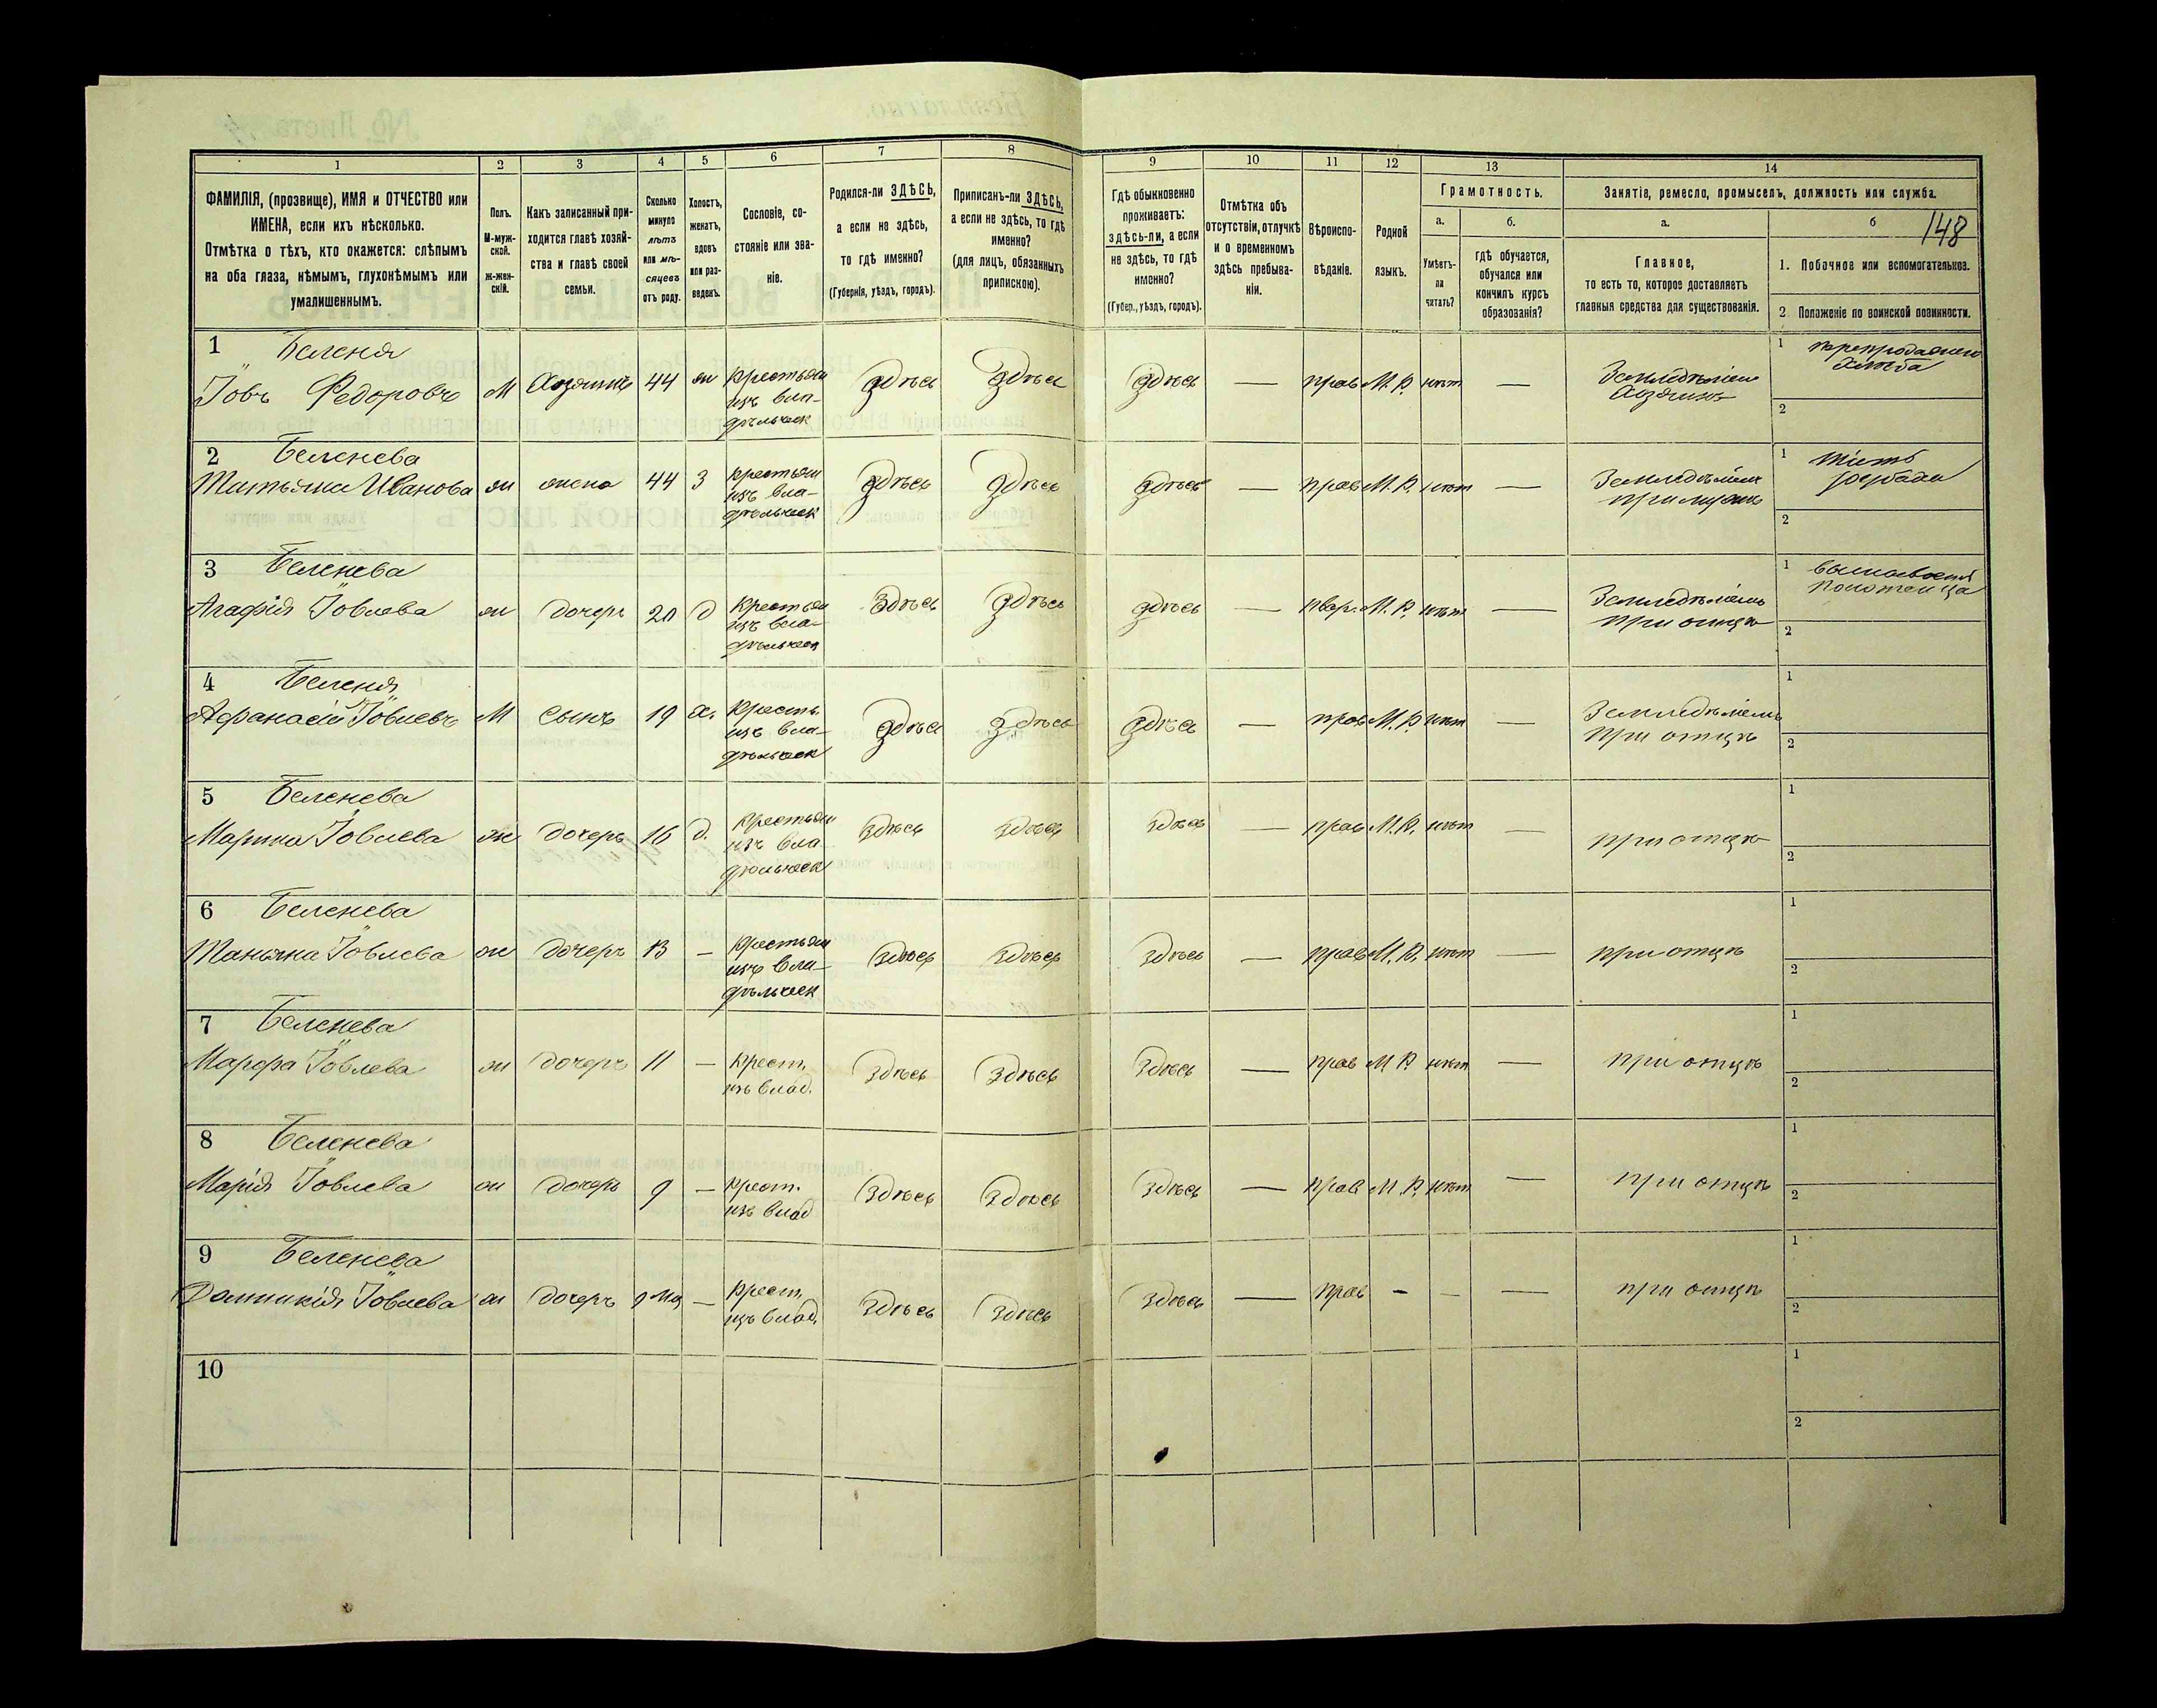 1 2 3 4 5 6 7 8 9 10 11 12 13 14
ФАМИЛІЯ, (прозвище), ИМЯ и ОТЧЕСТВО или
ИМЕНА, если ихъ нѣсколько.
Отмѣтка о тѣхъ, кто окажется: слѣпымъ
на оба глаза, нѣмымъ, глухонѣмымъ или
умалишеннымъ.
Полъ.
М-муж-
ской.
ж-жен-
скій.
Какъ записанный при-
ходится главѣ хозяй-
ства и главѣ своей
семьи.
Сколько
минуло
лѣтъ
или мѣ-
сяцевъ
отъ роду.
Холостъ,
женатъ,
вдовъ
или раз-
веденъ.
Сословіе, со-
стояніе или зва-
ніе.
Родился-ли ЗДѢСЬ,
а если не здѣсь,
то гдѣ именно?
(Губернія, уѣздъ, городъ).
Приписанъ-ли ЗДѢСЬ,
а если не здѣсь, то гдѣ
именно?
(для лицъ, обязанныхъ
припискою).
Гдѣ обыкновенно
проживаетъ:
здѣсь-ли, а если
не здѣсь, то гдѣ
именно?
(Губер., уѣздъ, городъ).
Отмѣтка объ
отсутствіи, отлучкѣ
и о временномъ
здѣсь пребыва-
ніи.
Вѣроиспо-
вѣданіе.
Родной
языкъ.
Грамотность.
а.
Умѣетъ-
ли
читать?
б.
гдѣ обучается,
обучался или
кончилъ курсъ
образованія?
Занятіе, ремесло, промыселъ, должность или служба.
а.
Главное,
то есть то, которое доставляетъ
главныя средства для существованія.
б 148
1. Побочное или вспомогательное.
2. Положеніе по воинской повинности.
1 Беленя
Іовъ Федоровъ М Хозяинъ 44 ж Крестьян здѣсь здѣсь здѣсь — прав М. Р. нѣтъ —
изъ вла-
дѣльческ
Земледѣліем
Хозяинъ
1
хлѣба
2
2 Беленева
Татьяна Иванова ж жена 44 З Крестьян здѣсь здѣсь здѣсь — прав М. Р. нѣтъ —
изъ вла-
дѣльческ
Земледѣліем
при мужѣ
1
2
3 Беленева
Агафія Іовлева ж дочерь 20 д Крестьян здѣсь здѣсь здѣсь — прав. М. Р. нѣтъ —
изъ вла-
дѣльческ
Земледѣліемъ
при отцѣ
1
2
4 Беленя
Афанасій Іовлевъ М сынъ 19 х. Крестьян здѣсь здѣсь здѣсь — прав М. Р. нѣтъ —
изъ вла-
дѣльческ
Земледѣліемъ
при отцѣ
1
2
5 Беленева
Марина Іовлева ж дочерь 16 д. Крестьян здѣсь здѣсь здѣсь — прав М. Р. нѣтъ — при отцѣ
изъ вла
дѣльческ
1
2
6 Беленева
Татьяна Іовлева ж дочерь 13 — Крестьян здѣсь здѣсь здѣсь — прав М. Р. нѣтъ — при отцѣ
изъ вла-
дѣльческ
1
2
7 Беленева
Марфа Іовлева ж дочерь 11 — Крест. здѣсь здѣсь здѣсь — прав М Р. нѣтъ — при отцѣ
изъ влад.
1
2
8 Беленева
Марія Іовлева ж дочерь 9 — Крест. здѣсь здѣсь здѣсь — прав М. Р. нѣтъ — при отцѣ
изъ влад
1
2
9 Беленева
Домникія Іовлева ж дочерь 9 мѣ — Крест. здѣсь здѣсь здѣсь — прав - - — при отцѣ
изъ влад.
1
2
10
1
2